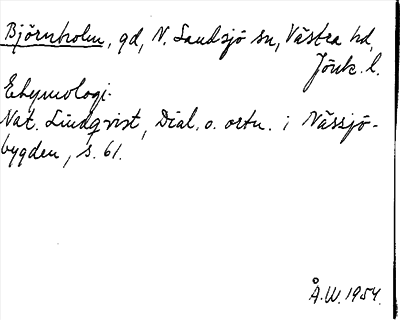 Björnholm, gd, N. Sandsjö sn, Västra hd,
Jönk. l.
Etymologi.
Nat. Lindqvist, Dial. o. ortn. i Nässjö-
bygden, s. 61.
Å.W. 1954.